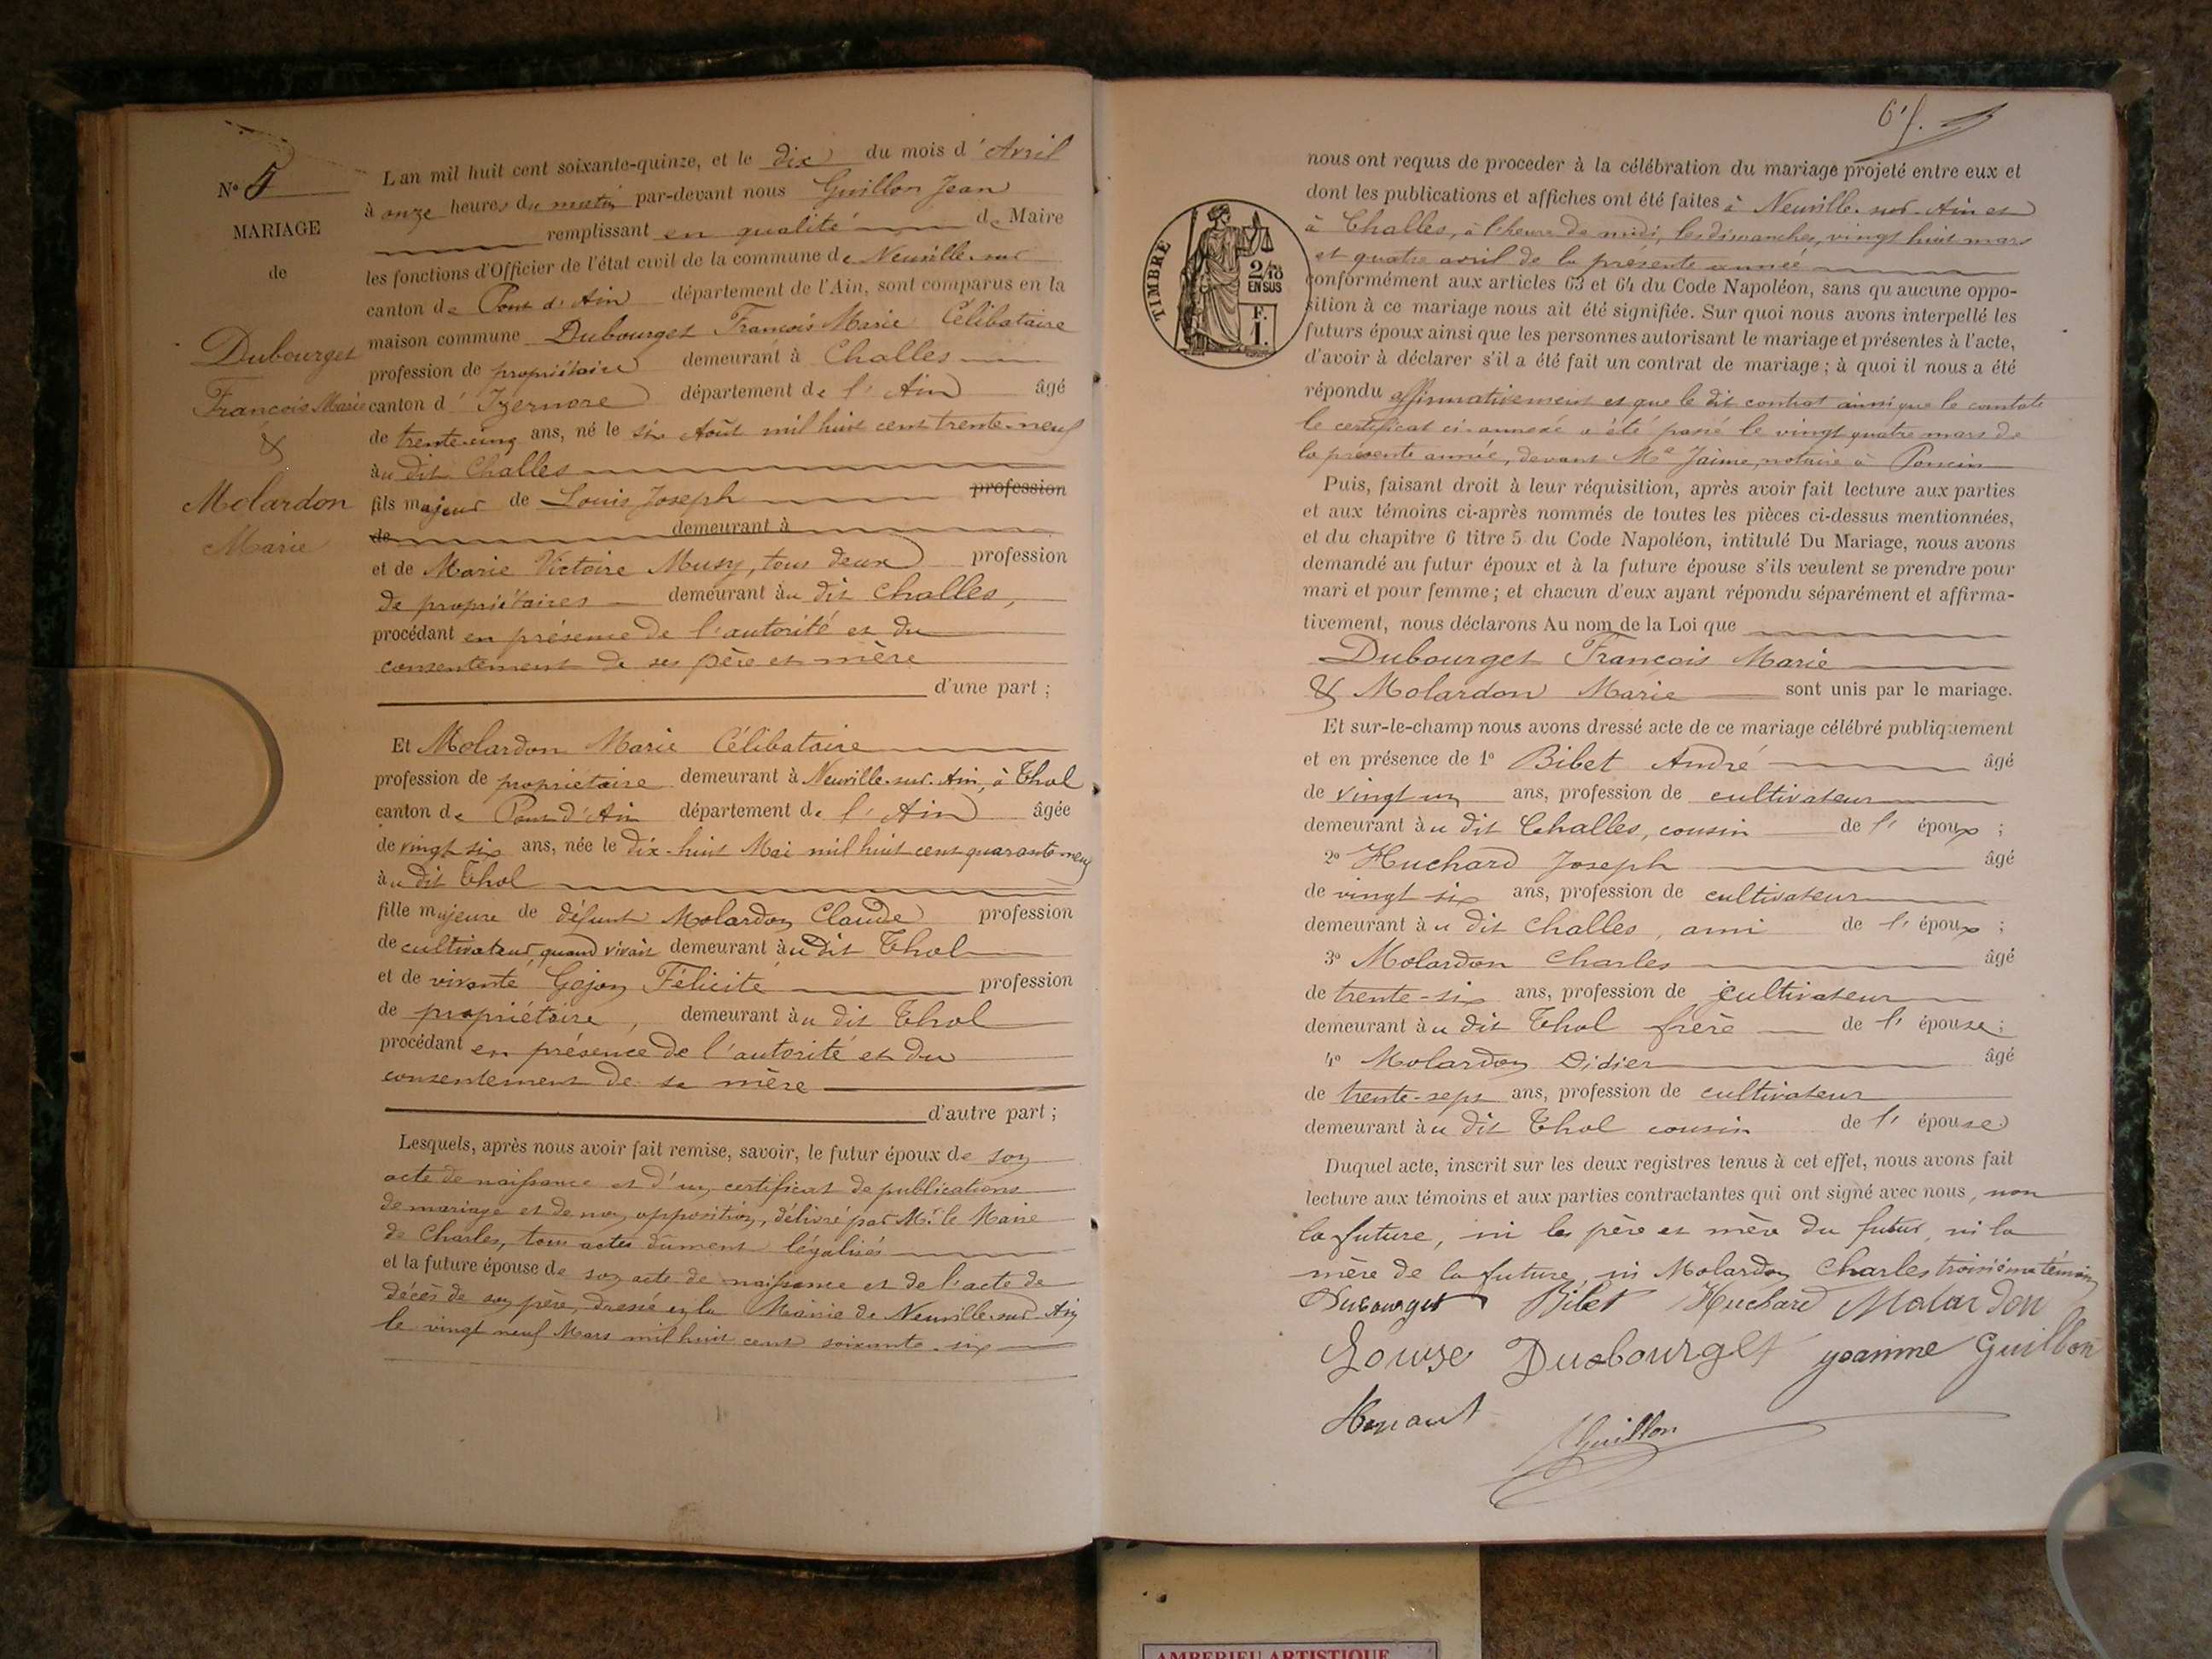 N° 5
MARIAGE
de
Dubourget
François Marie
&
Molardon
Marie
L an mil huit cent soixante-quinze, et le dix du mois d' Avril
à onze heures du matin par-devant nous Guillon Jean
remplissant en qualité de Maire
les fonctions d'Officier de l'état civil de la commune de Neuville-sur
canton de Pont d'Ain département de l'Ain, sont comparus en la
maison commune Dubourget François Marie Célibataire
profession de propriétaire demeurant à Challes
canton d' Izernore département de l' Ain âgé
de trente-cinq ans, né le six Août mil huit cent trente-neuf
àu dit Challes
fils majeur de Louis Joseph profession
de demeurant à
et de Marie Victoire Musy, tous deux profession
de propriétaires demeurant àu dit Challes,
procédant en présence de l'autorité et du
consentement de ses père et mère
d'une part ;
Et Molardon Marie Célibataire
profession de propriétaire demeurant à Neuville-sur-Ain, à Thol
canton de Pont d'Ain département de l' Ain âgée
de vingt six ans, née le dix-huit Mai mil huit cent quarante-neuf
àu dit Thol
fille majeure de défunt Molardon Claude profession
de cultivateur, quand vivait demeurant àu dit Thol
et de vivante Gojon Félicité profession
de propriétaire, demeurant àu dit Thol
procédant en présence de l'autorité et du
consentement de sa mère
d'autre part ;
Lesquels, après nous avoir fait remise, savoir, le futur époux de son
acte de naissance et d'un certificat de publications
de mariage et de non opposition, délivré par Mr. le Maire
de Charles, tous actes dûment légalisés
et la future épouse de son acte de naissance et de l'acte de
décès de son père, dressé en la Mairie de Neuville-sur-Ain
le vingt neuf Mars mil huit cent soixante-six
TIMBRE
2/10
EN SUS
F.
1.
nous ont requis de proceder à la célébration du mariage projeté entre eux et
dont les publications et affiches ont été faites à Neuville-sur-Ain et
à Challes, à l'heure de midi, les dimanches, vingt huit mars
et quatre avril de la présente année
conformément aux articles 63 et 64 du Code Napoléon, sans qu aucune oppo-
sition à ce mariage nous ait été signifiée. Sur quoi nous avons interpellé les
futurs époux ainsi que les personnes autorisant le mariage et présentes à l'acte,
d'avoir à déclarer s'il a été fait un contrat de mariage ; à quoi il nous a été
répondu affirmativement et que le dit contrat ainsi que le constate
le certificat ci-annexé a été passé le vingt quatre mars de
la présente année, devant Me Jaime, notaire à Poncin
Puis, faisant droit à leur réquisition, après avoir fait lecture aux parties
et aux témoins ci-après nommés de toutes les pièces ci-dessus mentionnées,
et du chapitre 6 titre 5 du Code Napoléon, intitulé Du Mariage, nous avons
demandé au futur époux et à la future épouse s'ils veulent se prendre pour
mari et pour femme ; et chacun d'eux ayant répondu séparément et affirma-
tivement, nous déclarons Au nom de la Loi que
Dubourget François Marie
& Molardon Marie sont unis par le mariage.
Et sur-le-champ nous avons dressé acte de ce mariage célébré publiquement
et en présence de 1° Bibet André âgé
de vingt un ans, profession de cultivateur
demeurant àu dit Challes, cousin de l' époux ;
2° Huchard Joseph âgé
de vingt-six ans, profession de cultivateur
demeurant àu dit Challes, ami de l' époux ;
3° Molardon Charles âgé
de trente-six ans, profession de cultivateur
demeurant àu dit Thol frère de l' épouse ;
4° Molardon Didier âgé
de trente-sept ans, profession de cultivateur
demeurant àu dit Thol cousin de l' épouse
Duquel acte, inscrit sur les deux registres tenus à cet effet, nous avons fait
lecture aux témoins et aux parties contractantes qui ont signé avec nous, non
la future, ni les père et mère du futur, ni la
mère de la future, ni Molardon Charles troisième témoin
Dubourget Bibet Huchard Molardon
Louise Dubourget Guillon
Guillon
AMBERIEU ARTISTIQUE